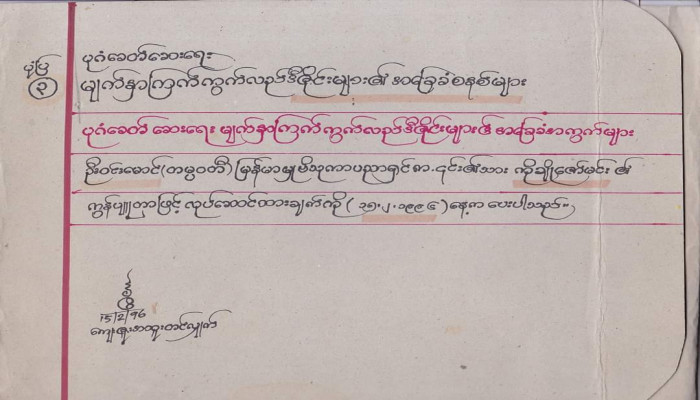 ပုံပြ
၃
ပုဂံခေတ်ဆေးရေး
မျက်နှာကြက်ကွက်လည်ဒီဇိုင်းများ၏ အခြေခံစနစ်များ
ပုဂံခေတ် ဆေးရေး မျက်နှာကြက်ကွက်လည်ဒီဇိုင်းများ၏ အခြေခံအကွက်များ
ဦးဝင်းမောင်(တမ္ပဝတီ) မြန်မာမှုဗိသုကာပညာရှင် က.၎င်း၏သား ကိုချိုဇော်မင်း ၏
ကွန်ပျူတာဖြင့် လုပ်ဆောင်ထားချက်ကို ( ၁၅.၂.၁၉၉၆ )နေ့က ပေးပါသည်။
15/2/96
ကျေးဇူးအထူးတင်လျှက်